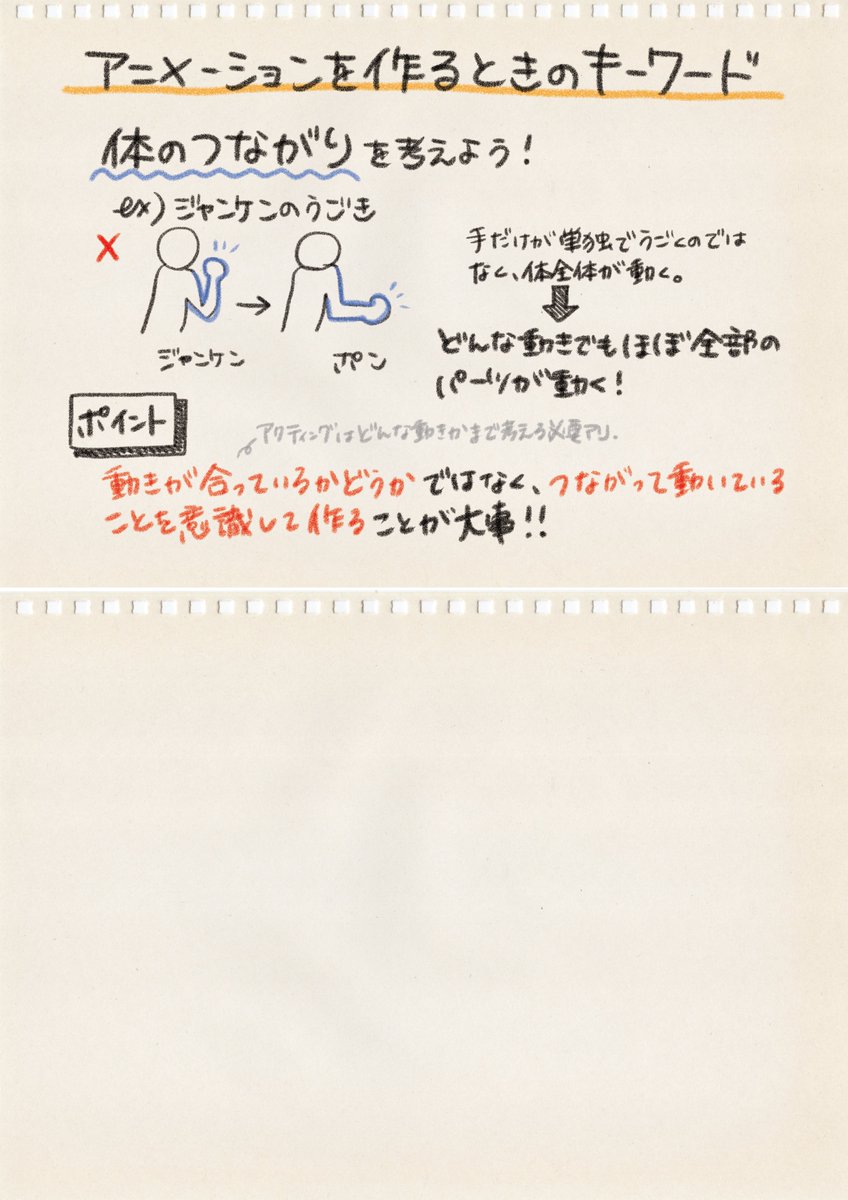 アニメーションを作るときのキーワード
体のつながりを考えよう！
ex)ジャンケンのうごき
×
手だけが単独でうごくのでは
なく、体全体が動く。
ジャンケン
ポン
どんな動きでもほぼ全部の
パーツが動く！
ポイント
アクティングはどんな動きかまで考える必要アリ.
動きが合っているかどうかではなく、つながって動いている
ことを意識して作ることが大事!!